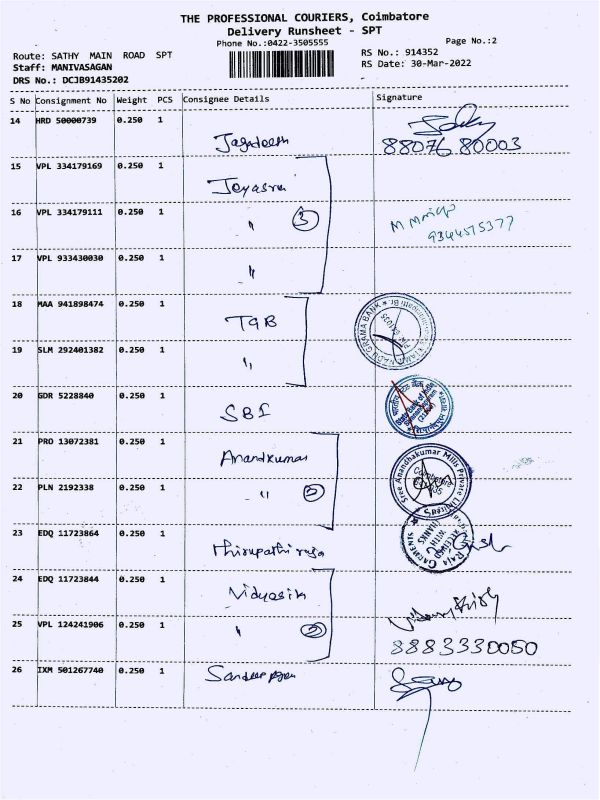 THE PROFESSIONAL COURIERS, Coimbatore
Delivery Runsheet - SPT
Phone No.:0422-3505555
Page No.:2
Route: SATHY MAIN ROAD SPT
RS No.: 914352
Staff: MANIVASAGAN
RS Date: 30-Mar-2022
DRS No.: DCJB91435202
S No Consignment No Weight PCS Consignee Details Signature
14 HRD 50000739 0.250 1
Jagadeesh 88076 80003
15 VPL 334179169 0.250 1
Jeyasri
16 VPL 334179111 0.250 1
" 3
9344515377
17 VPL 933430030 0.250 1
"
18 MAA 941898474 0.250 1
TGB
19 SLM 292401382 0.250 1
"
20 GDR 5228840 0.250 1
SBI
21 PRO 13072381 0.250 1
Anandkumar
Sree Anandhakumar Mills Private Limited
22 PLN 2192338 0.250 1
" 2
23 EDQ 11723864 0.250 1
Thirupathi raja
RAJA GARMENTS
RECEIVED WITH THANKS
24 EDQ 11723844 0.250 1
Vidyasik
25 VPL 124241906 0.250 1
" 2 8883330050
26 IXM 501267740 0.250 1